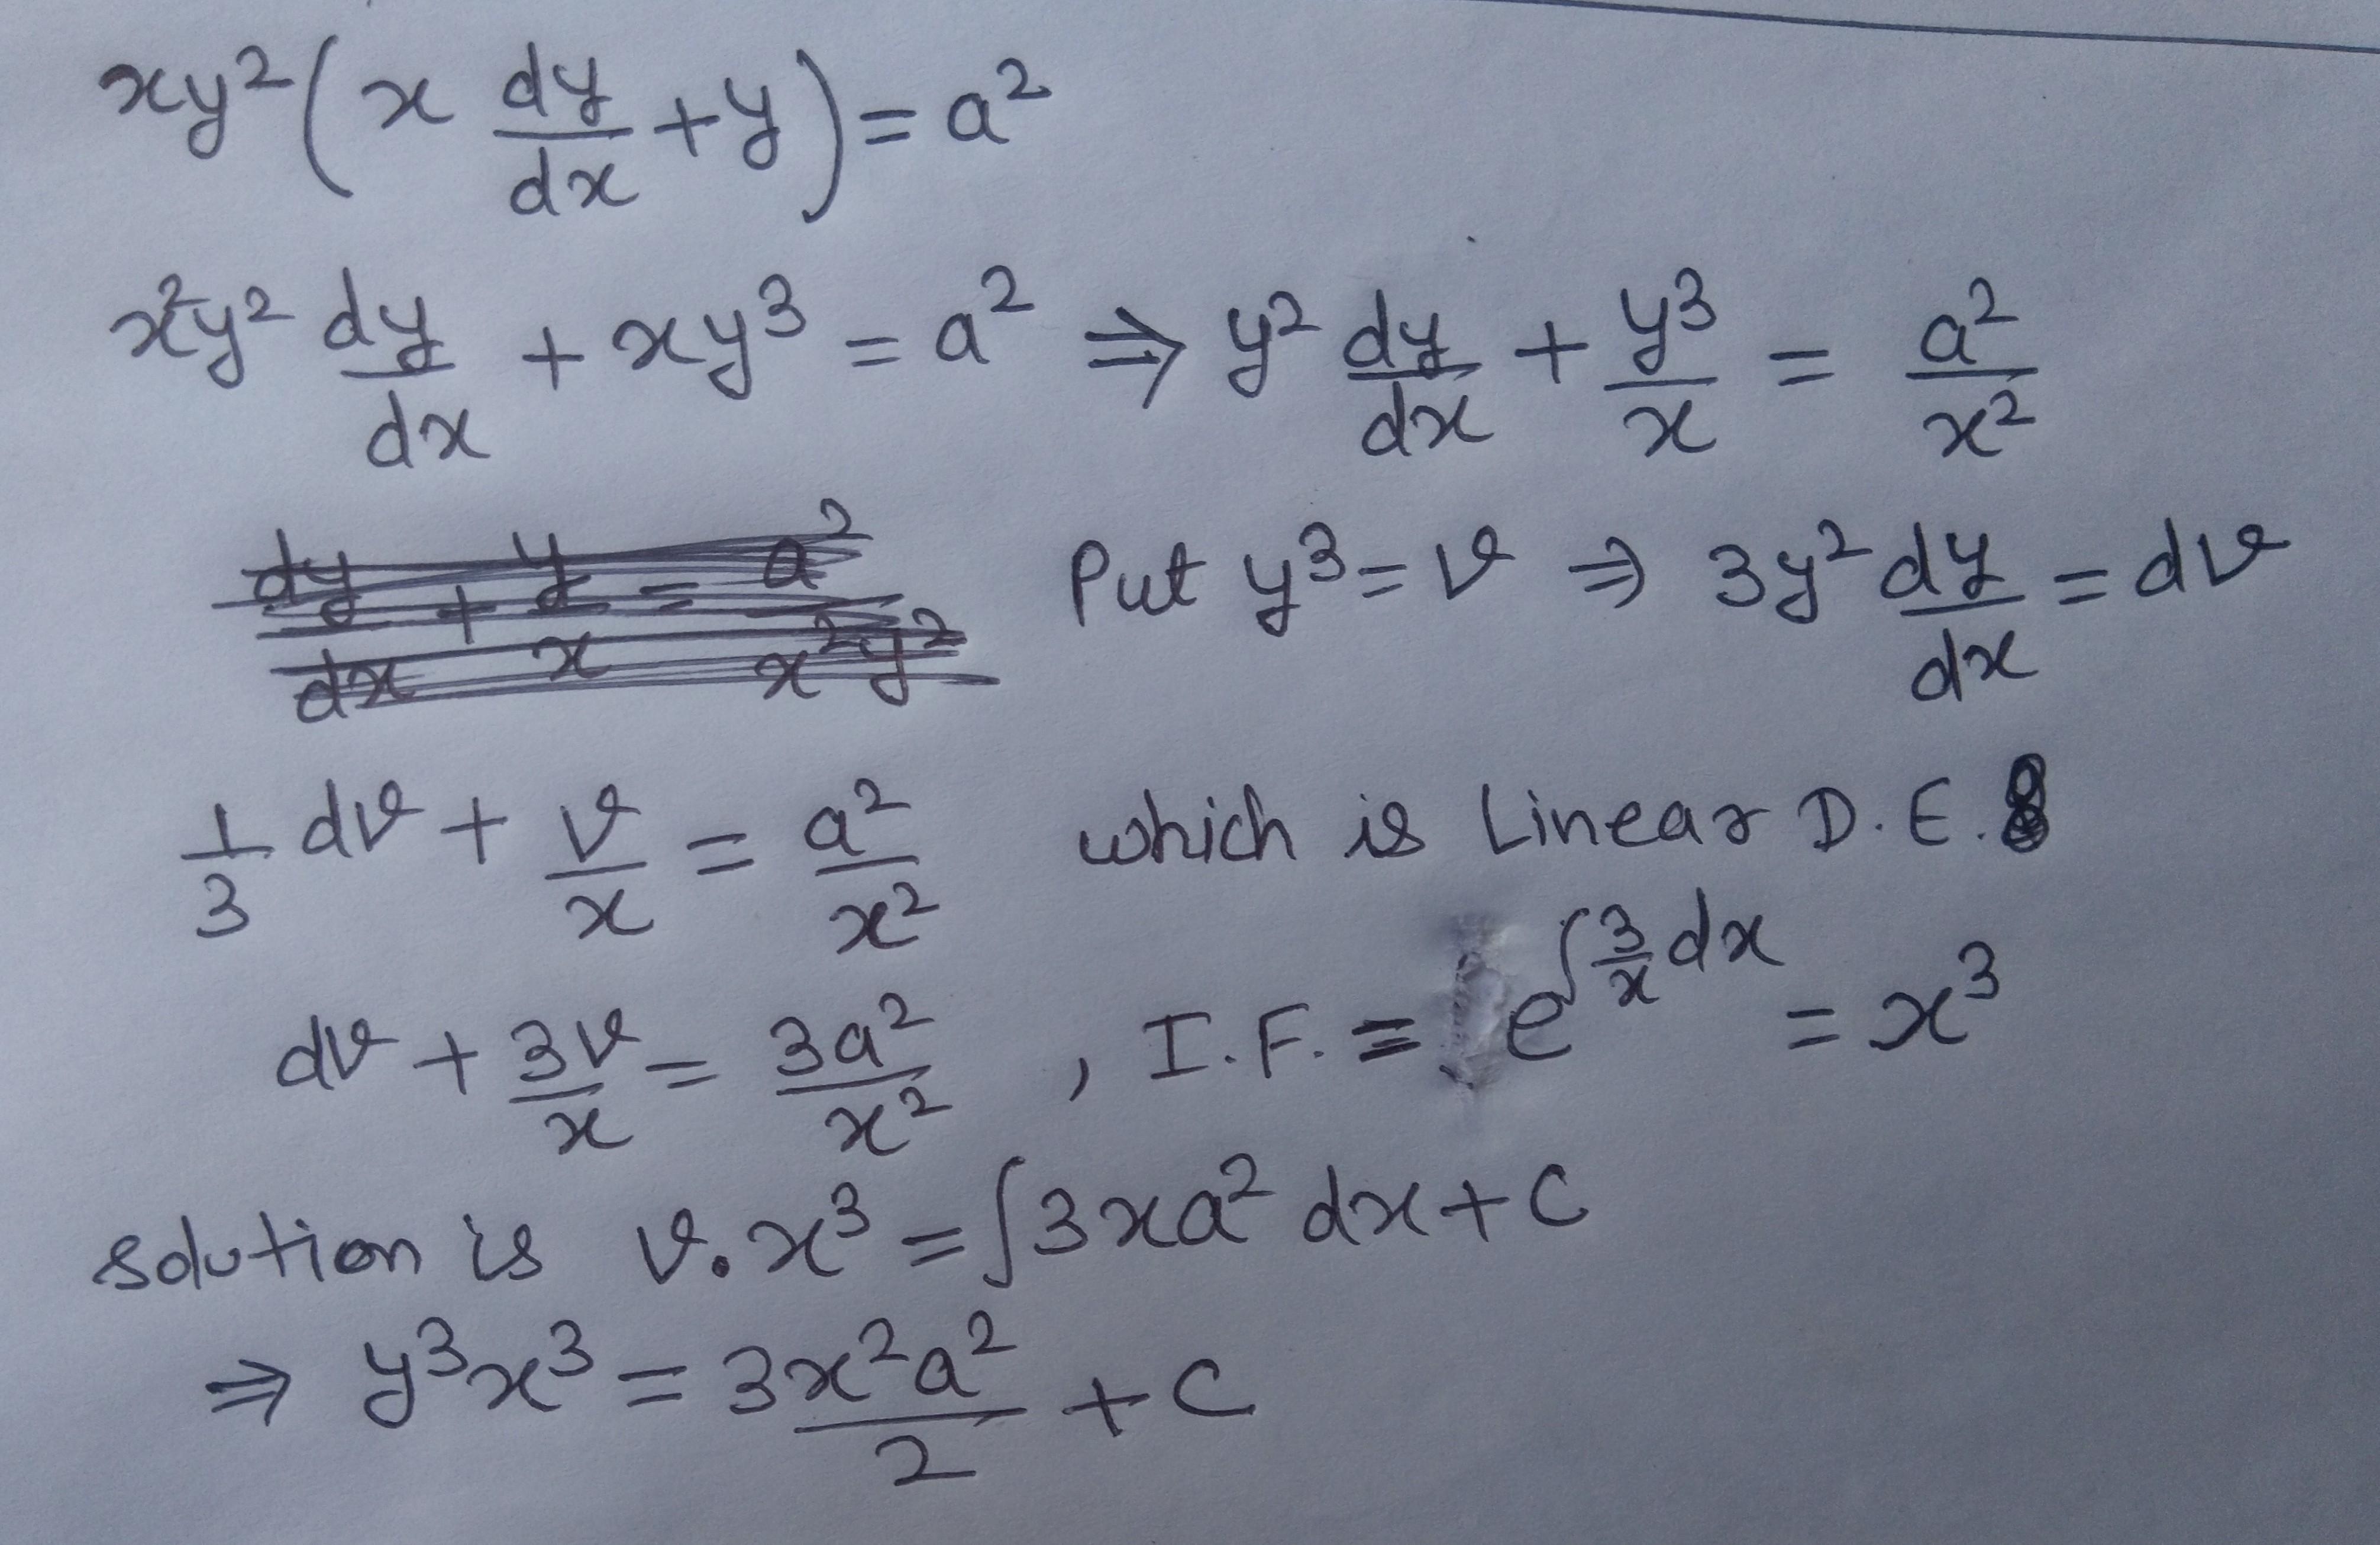 xy²(x dy/dx + y) = a²
x²y² dy/dx + xy³ = a² ⇒ y² dy/dx + y³/x = a²/x²
dy/dx + y/x = a²/x²y² Put y³ = v ⇒ 3y² dy/dx = dv
1/3 dv + v/x = a²/x² which is Linear D.E.
dv + 3v/x = 3a²/x² , I.F. = e^∫3/x dx = x³
solution is v.x³ = ∫3xa² dx + c
⇒ y³x³ = 3x²a²/2 + c